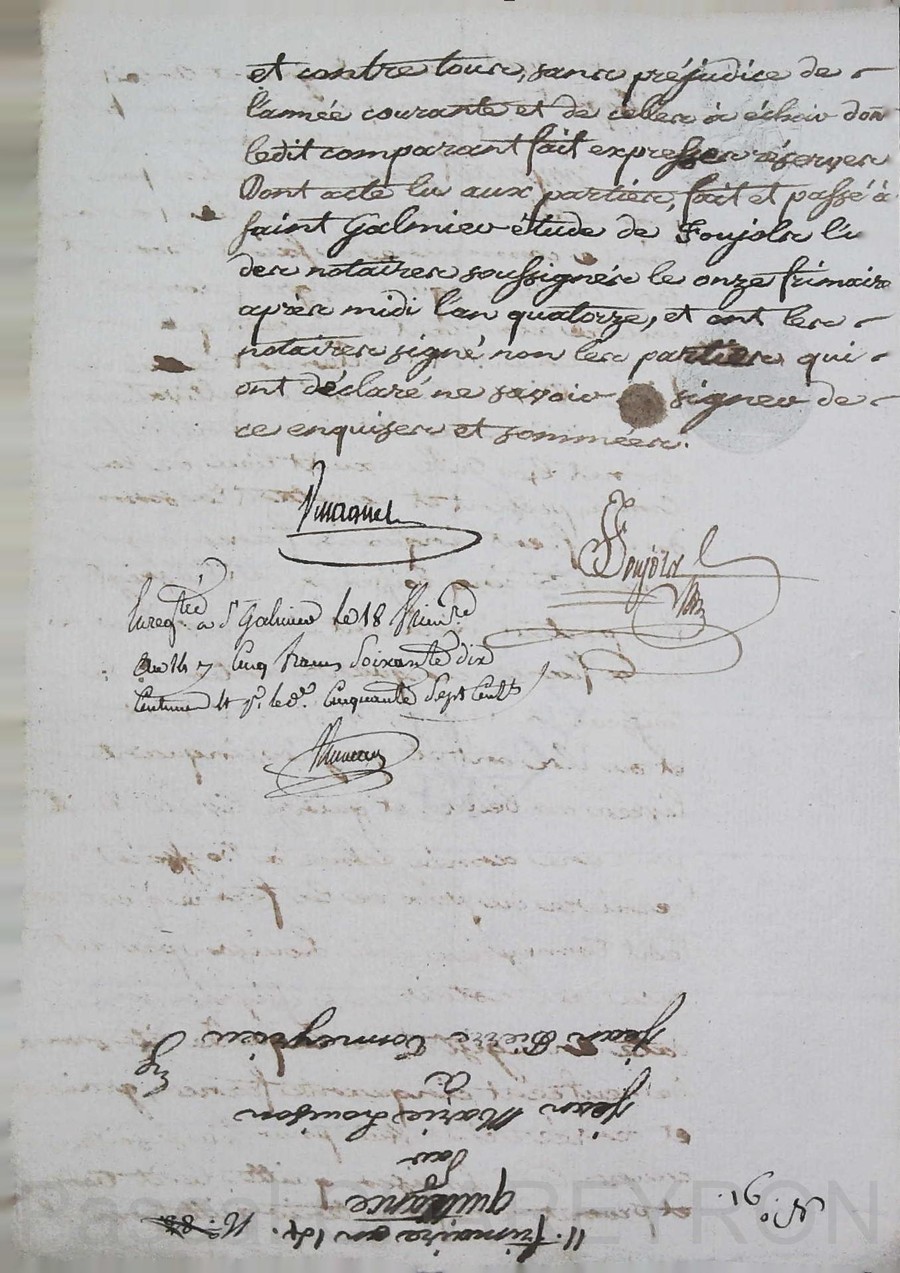 et contre tous, sans préjudice de
l'année courante et de celles à échoir don
ledit comparant fait expresses réserves
Dont acte lu aux parties, fait et passé à
saint Galmier étude de Foujols l'u
des notaires soussignés le onze frimaire
après midi l'an quatorze, et ont les
notaires signé non les parties qui
ont déclaré ne savoir signer de
ce enquises et sommées.
Foujols
Enregtré à St Galmier le 18 frimre
an 14 cinq francs soixante dix
centimes cinquante sept cents
11. frimaire an 14.
quittance
par
Jean Marie Louison
à
Jean Pierre Commeyrieu
No. 16.
Pascal BEYRON